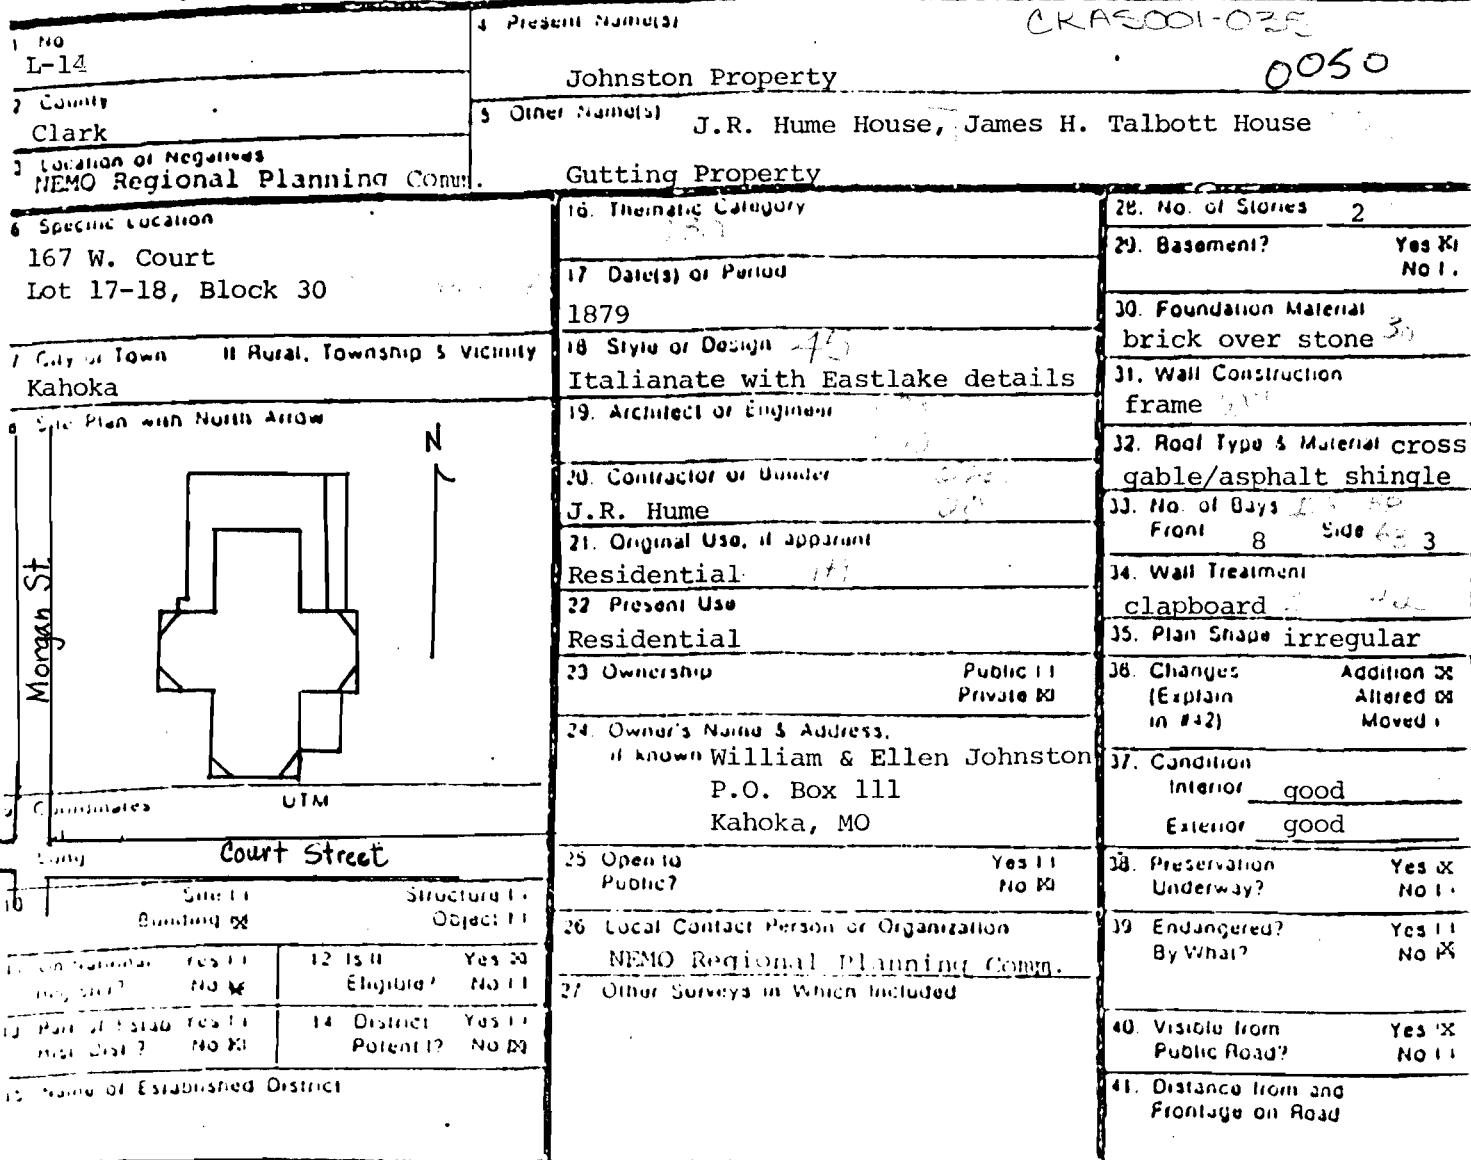 CKAS001-035
0050
1 No
L-14
4 Present Name(s)
Johnston Property
2 County
Clark
5 Other Name(s)
J.R. Hume House, James H. Talbott House
Gutting Property
3 Location of Negatives
NEMO Regional Planning Comm.
6 Specific Location
167 W. Court
Lot 17-18, Block 30
7 City or Town If Rural, Township & Vicinity
Kahoka
8 Site Plan with North Arrow
N
Morgan St.
9 Coordinates UTM
Long
Court Street
10 Site Structure
Building Object
11 On National Register? Yes No
12 Is It Eligible? Yes No
13 Part of Estab Hist. Dist.? Yes No
14 District Potent'l? Yes No
15 Name of Established District
16. Thematic Category
17 Date(s) or Period
1879
18 Style or Design 45
Italianate with Eastlake details
19. Architect or Engineer
20. Contractor or Builder
J.R. Hume
21. Original Use, if apparent
Residential
22 Present Use
Residential
23 Ownership Public
Private
24. Owner's Name & Address,
if known William & Ellen Johnston
P.O. Box 111
Kahoka, MO
25 Open to Yes
Public? No
26 Local Contact Person or Organization
NEMO Regional Planning Comm.
27 Other Surveys in Which Included
28. No. of Stories 2
29. Basement? Yes
No
30. Foundation Material
brick over stone 30
31. Wall Construction
frame
32. Roof Type & Material cross
gable/asphalt shingle
33. No. of Bays
Front 8 Side 3
34. Wall Treatment
clapboard
35. Plan Shape irregular
36. Changes Addition
(Explain Altered
in #42) Moved
37. Condition
Interior good
Exterior good
38. Preservation Yes X
Underway? No
39 Endangered? Yes
By What? No X
40. Visible from Yes X
Public Road? No
41. Distance from and
Frontage on Road